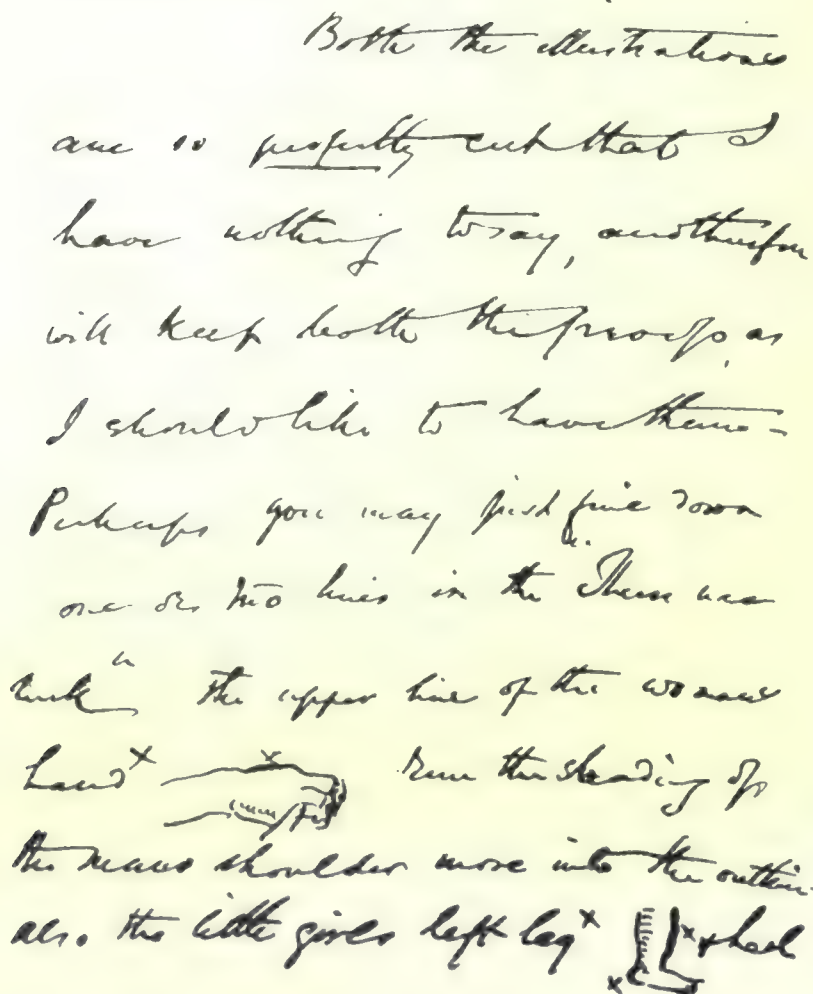 Both the illustrations
are so perfectly cut that I
have nothing to say, and therefore
will keep both the proofs, as
I should like to have them -
Perhaps you may just fine down
one or two lines in the "There was
" the upper line of the womans
hand x x run the shading of
the mans shoulder more into the outline
also the little girls left leg x x x heel
x